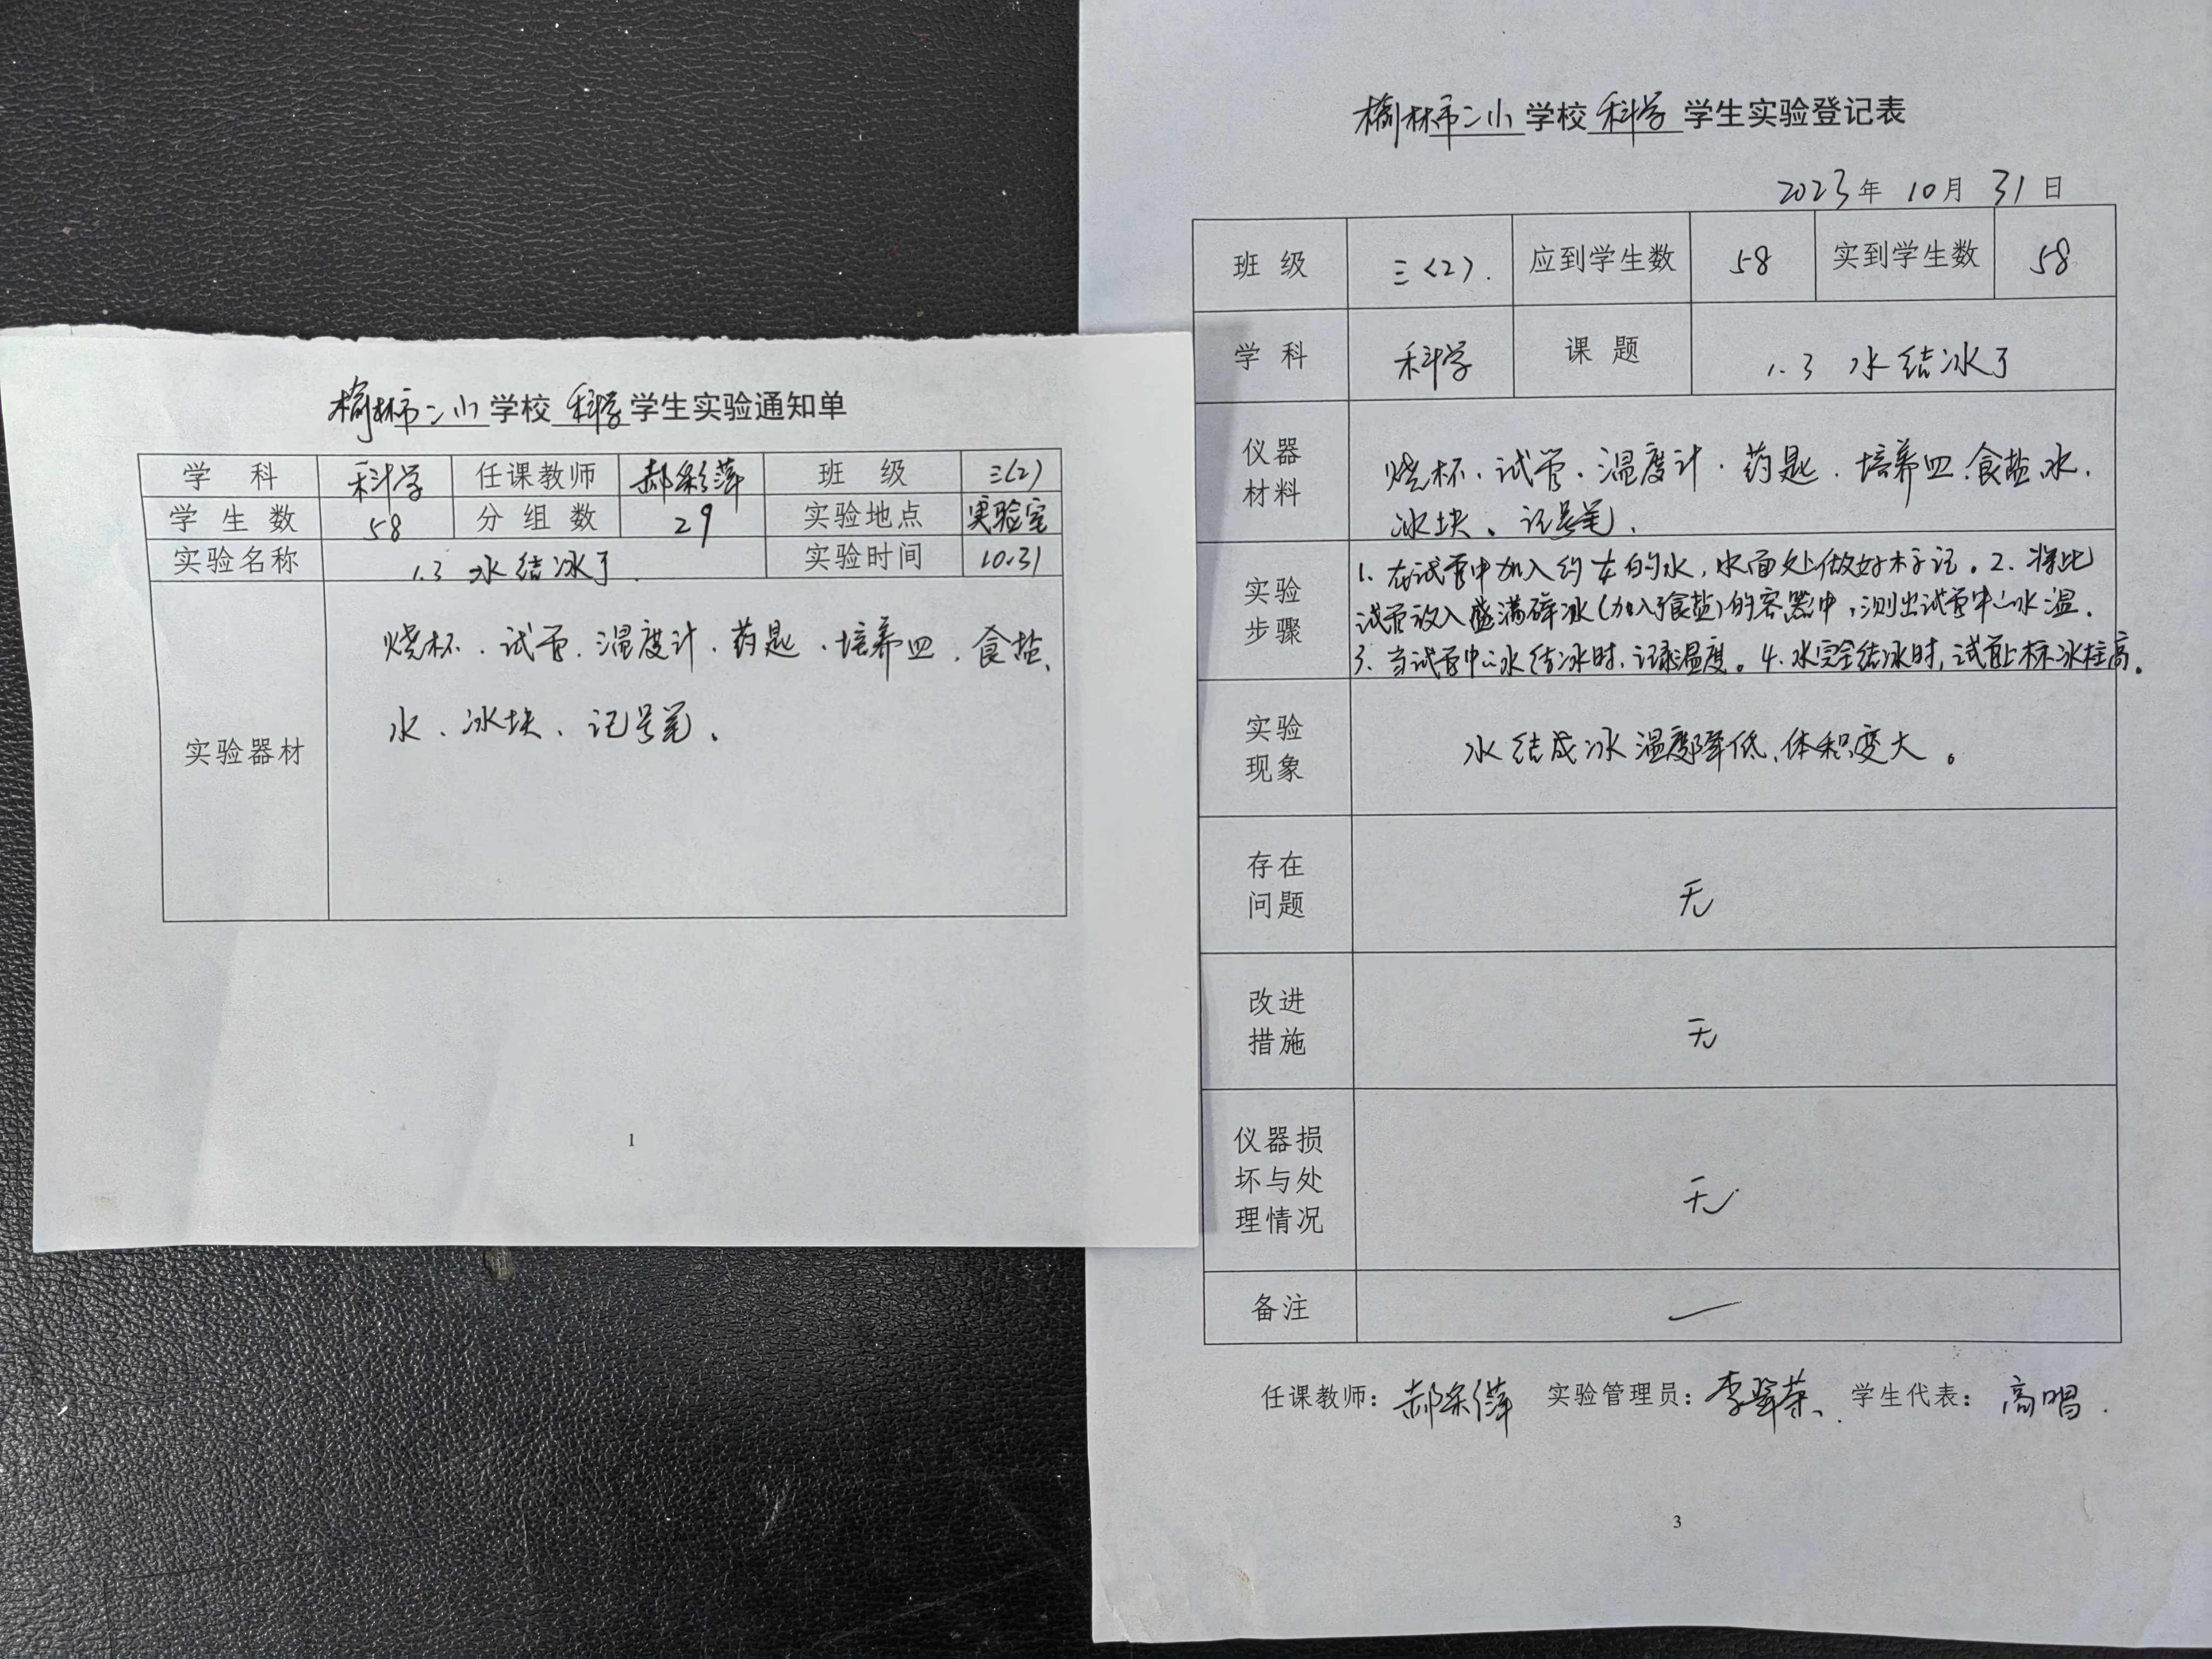 榆林市二小学校科学学生实验通知单
学科 科学 任课教师 郝彩萍 班级 三(2)
学生数 58 分组数 29 实验地点 实验室
实验名称 1.3 水结冰了. 实验时间 10.31
实验器材
烧杯、试管、温度计、药匙、培养皿、食盐、
水、冰块、记号笔。
1
榆林市二小学校科学学生实验登记表
2023年10月31日
班级 三<2>. 应到学生数 58 实到学生数 58
学科 科学 课题 1.3 水结冰了
仪器
材料
烧杯、试管、温度计、药匙、培养皿、食盐、水、
冰块、记号笔、
实验
步骤
1、在试管中加入约 的水,水面处做好标记。2、将此
试管放入盛满碎冰(加入了食盐)的容器中,测出试管中的水温.
3、当试管中的水结冰时,记录温度。4、水完全结冰时,试管上标冰柱高。
实验
现象
水结成冰温度降低、体积变大。
存在
问题
无
改进
措施
无
仪器损
坏与处
理情况
无
备注
任课教师：郝彩萍 实验管理员：李 荣、 学生代表：高唱.
3